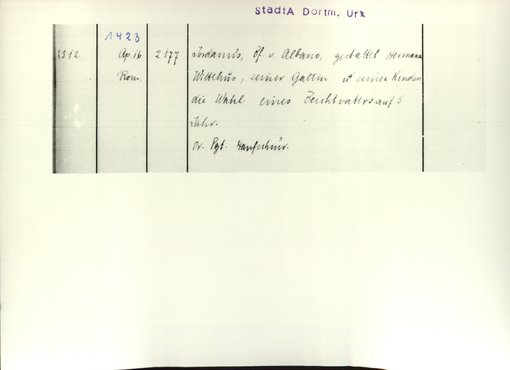 StadtA Dortm. Urk
1423
2312 Ap 16 2177 Jordanus, Bf. v. Albano, gestattet Hermann
Rom. Witthus, seiner Gattin u seinen Kindern
die Wahl eines Beichtvaters auf 5
Jahr.
Or. Pgt. Hanfschnur.